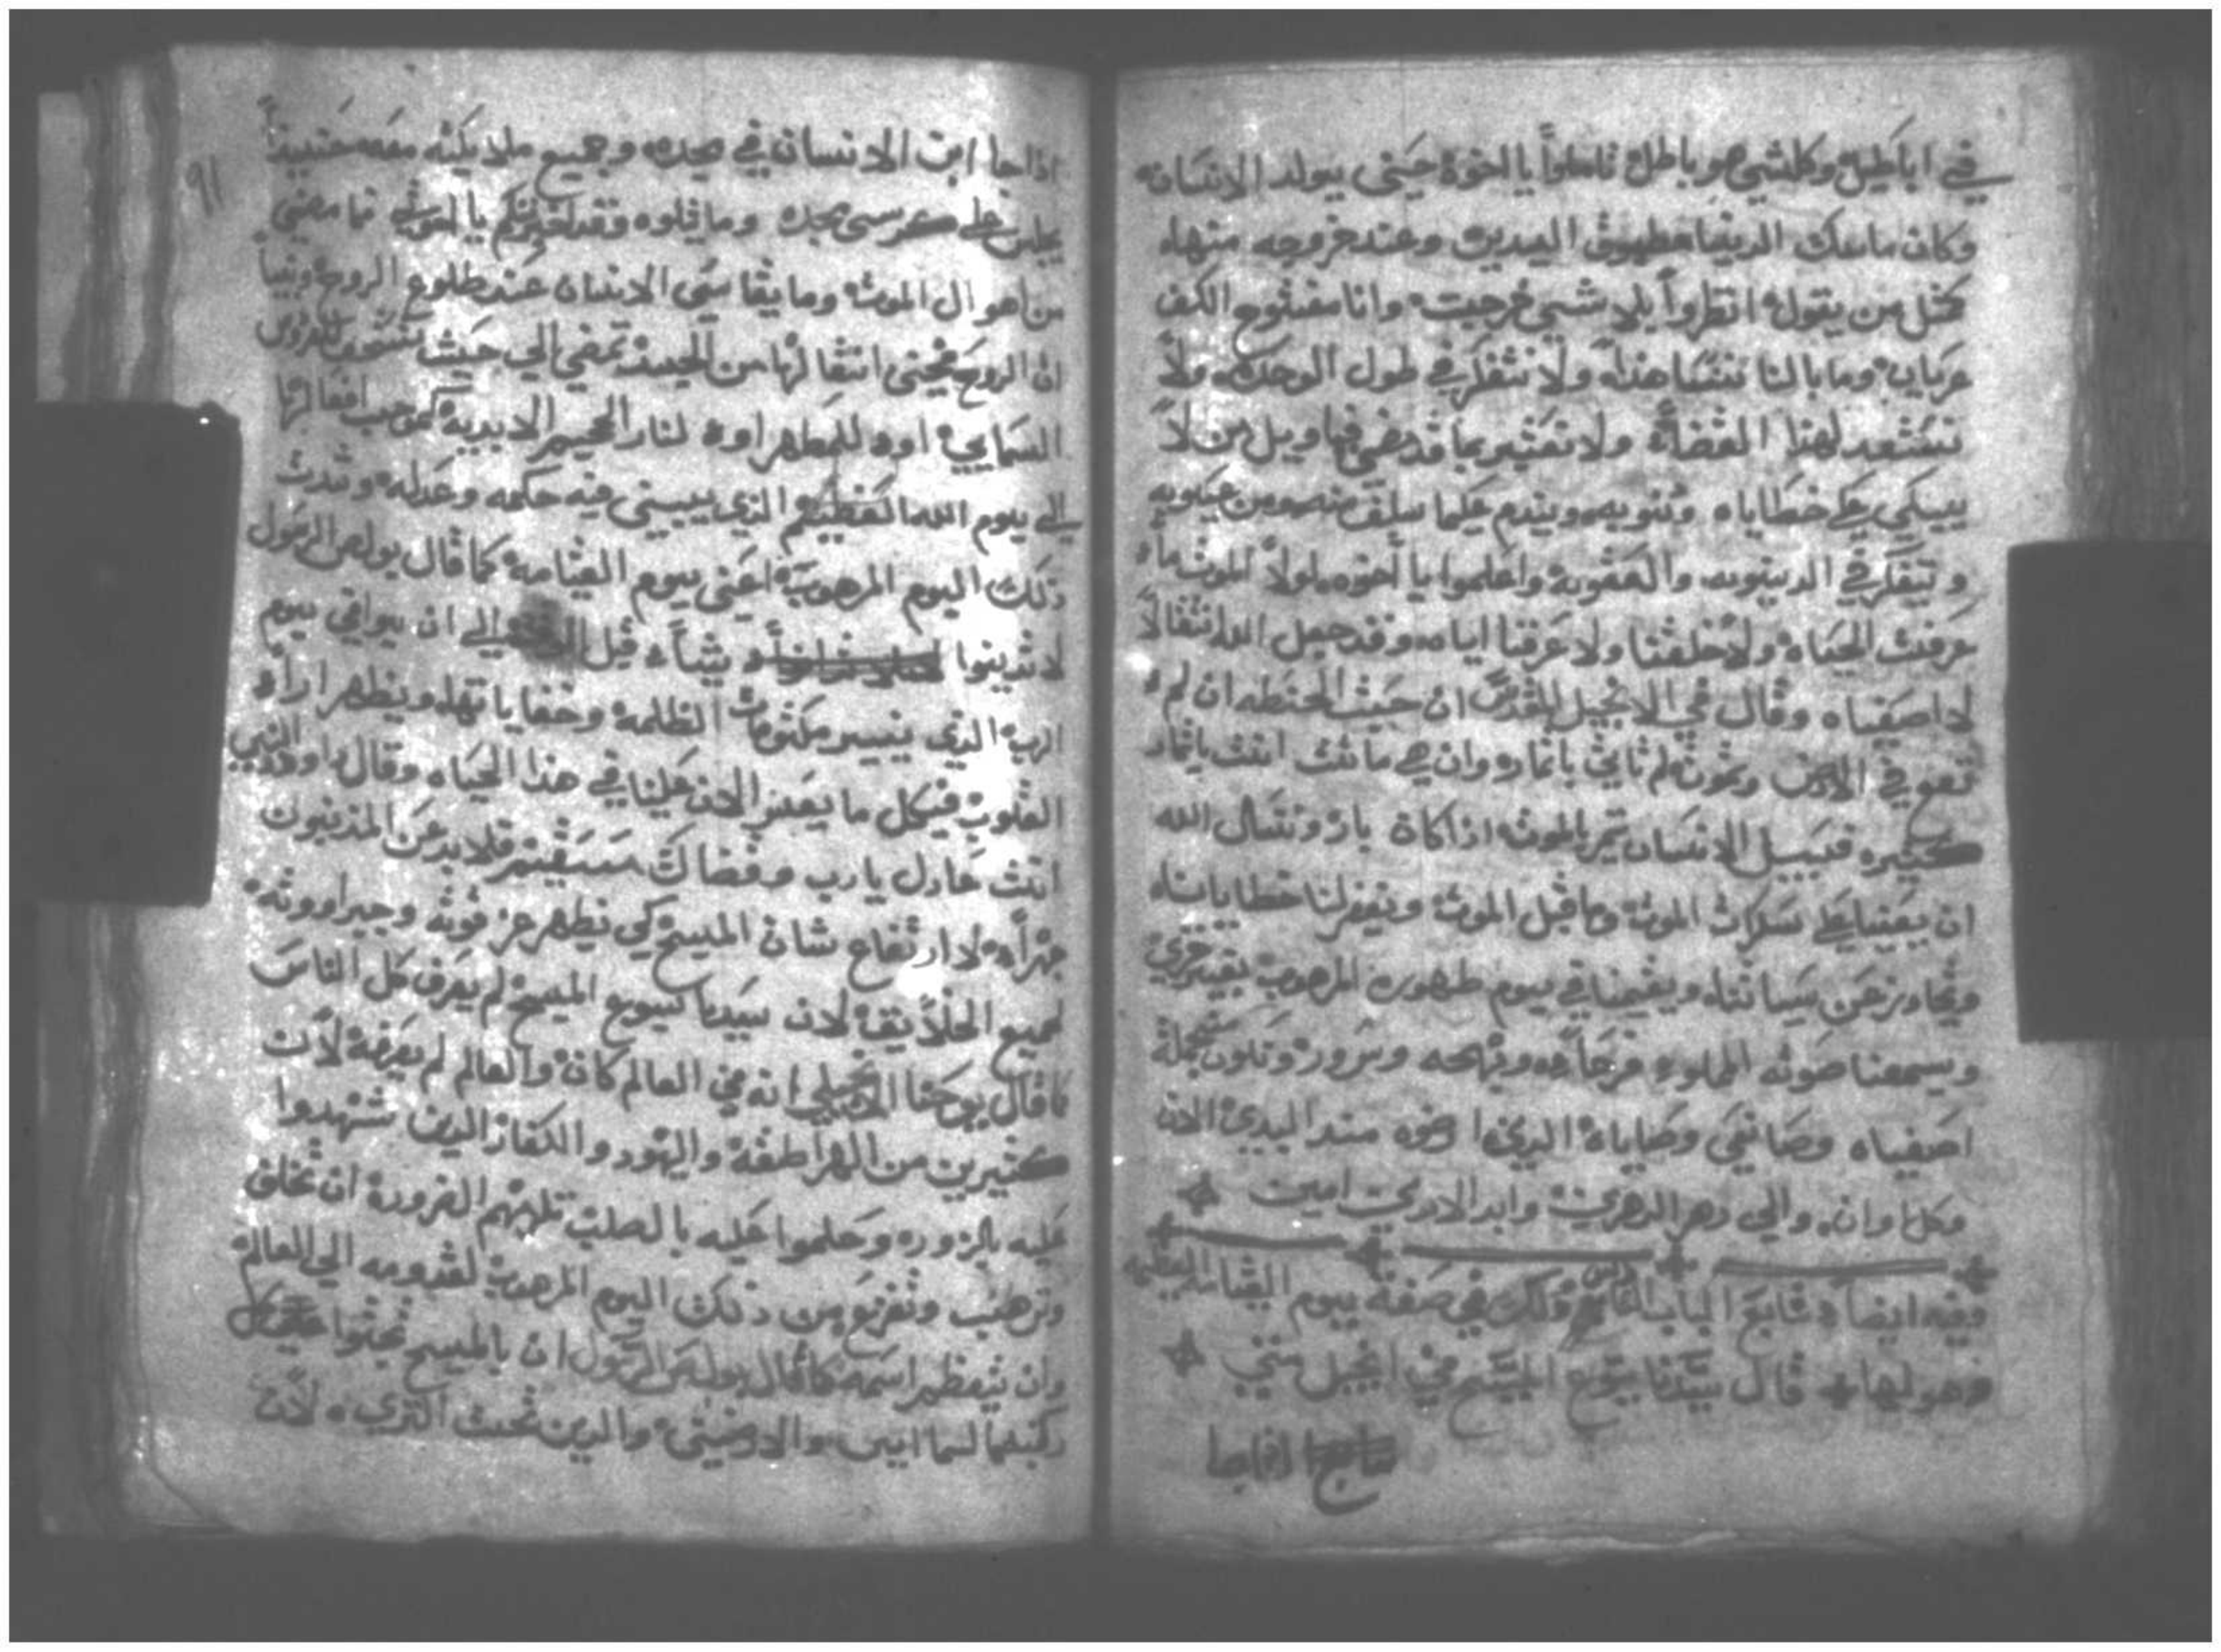 في اباطيل وكلشي هو باطل تاملوا يا اخوة حيني يولد الانسان
وكان ماسك الدنيا مطبوق اليدين وعند خروجه منها
كمثل من يقول انظروا بلا شي خرجت وانا مفتوح الكف
عريان وما بالنا ننسا هذا ولا نتفكر في طول الوحده ولا
نستعد لهذا القضاء ولا نعتبر بما قد مضي فيا ويل من لا
يبكي علي خطاياه وذنوبه ويندم علما سلف منه ومن عيوبه
وتيفكر في الدينونه والعقوبة واعلموا يا اخوه لولا الموت ما
عرفت الحياه ولا خلقنا ولا عرفنا اياه وقد جعل الله انتقالا
لاصفياه وقال في الانجيل المقدس ان حبت الحنطه ان لم
تقع في الارض وتموت لم تاتي باتمار وان هي ماتت اتت باتمار
كثيره فسبيل الانسان تمر بالموت اذا كان بار ونسال الله
ان يعينا علي سكرات الموت وما قبل الموت ويغفر لنا خطايانا
ويتجاوز عن سياتنا ويقيمنا في يوم ظهوره المرهوب بغير خزي
ويسمعنا صوته المملوء فرحا وبهجه وسرور ونكون بجملة
اصفياه وصانعي وصاياه الذين ارضوه منذ البدي الان
وكل اوان والي دهر الدهرين وابد الابدين امين
وفيه ايضا تابع الباب وذلك في صفة يوم القيامه العظيمه
وهولها قال سيدنا يسوع المسيح في انجيل متي
اذاجا
91
اذا جا ابن الانسان في مجده وجميع ملايكته معه حنيذا
يجلس علي كرسي مجده وما يتلوه وقد اخبرتكم يا اخوتي بما مضي
من اهوال الموت وما يقاسي الانسان عند طلوع الروح ونبيا
ان الروح حيني انتقالها من الجسد تمضي الي حيث تستحق للفردوس
السمايي اوه للمطهر اوه لنار الجحيم الابدية كموجب افعالها
الي يوم الله العظيم الذي يبيني فيه حكمه وعدله وتدت
ذلك اليوم المرهوب اعني يوم القيامة كما قال بولص الرسول
لا تدينوا شياء قبل الي ان يوافي يوم
الرب الذي ينير مكتومات الظلمة وخفاياتها ويظهر اراء
القلوب فيكل ما يعبر الان علينا في هذا الحياه وقال داوود النبي
انت عادل يارب وقضاك مستقيم فلا بد عن المذنبون
جهرا لارتفاع شان المسيح كي نظهر عز قوته وجبراووته
لجميع الخلايق لان سيدنا يسوع المسيح لم يعرف كل الناس
كما قال يوحنا الانجيلي انه في العالم كان والعالم لم يعرفه لان
كثيرين من الهراطقة واليهود والكفار الدين شهدوا
عليه بالزوره وحكموا عليه بالصلب تلزمهم الضرورة ان تخلق
وترهب وتفزع من ذلك اليوم المرهوب لقدومه الي العالم
وان يتعظم اسمه كما قال بولص الرسول ان بالمسيح تجثوا كل
ركبة مما في السمايين والارضيني والدين تحت التري لان